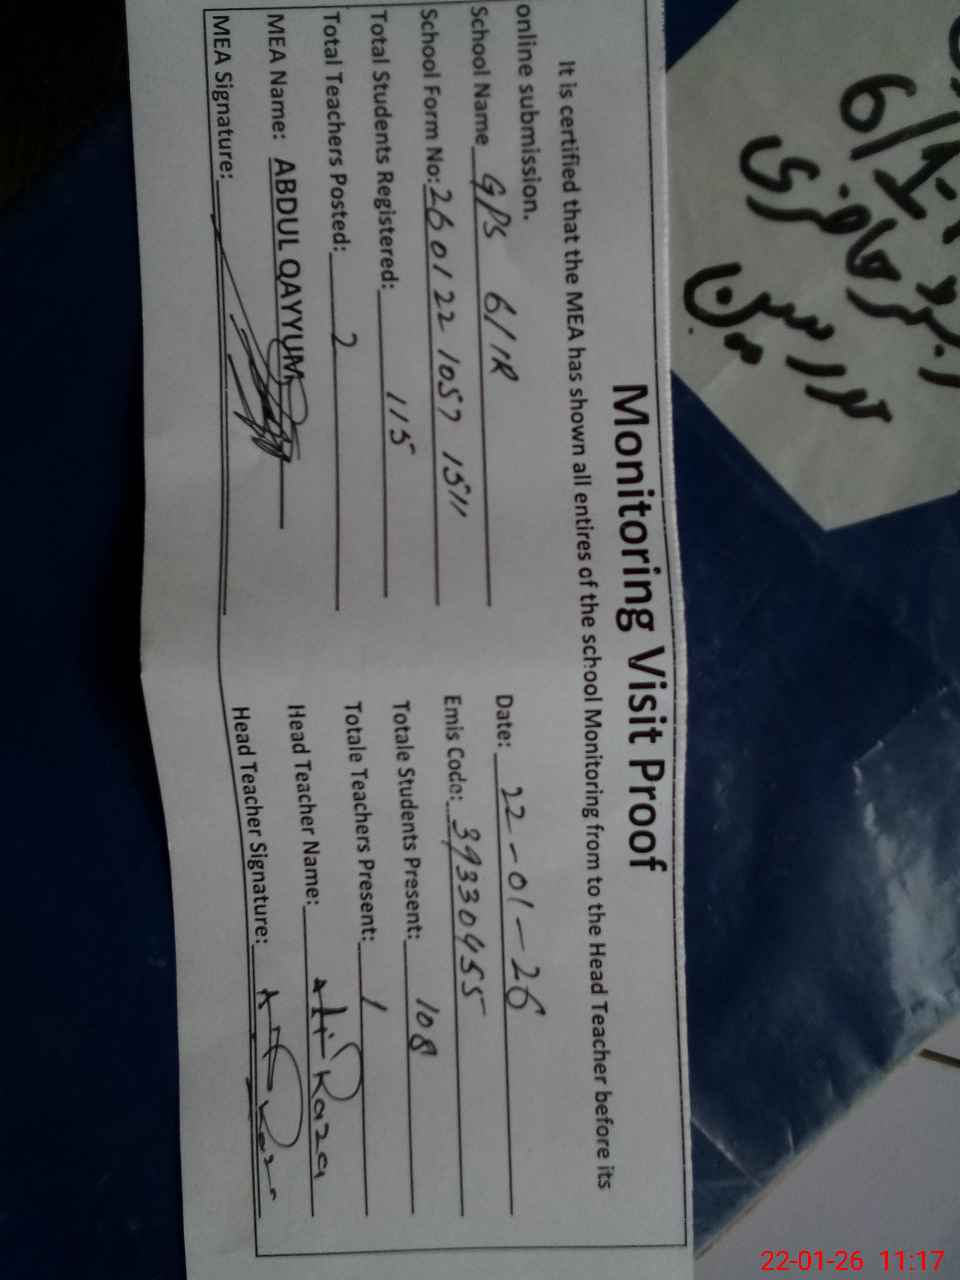 Monitoring Visit Proof
It is certified that the MEA has shown all entires of the school Monitoring from to the Head Teacher before its
online submission.
School Name GPS 6/1R Date: 22-01-26
School Form No: 260122 1057 1511 Emis Code: 39330455
Total Students Registered: 115 Totale Students Present: 108
Total Teachers Posted: 2 Totale Teachers Present: 1
MEA Name: ABDUL QAYYUM Head Teacher Name: Ali Raza
MEA Signature: Head Teacher Signature:
6/1R
رجسٹر حاضری
مدرسین
22-01-26 11:17